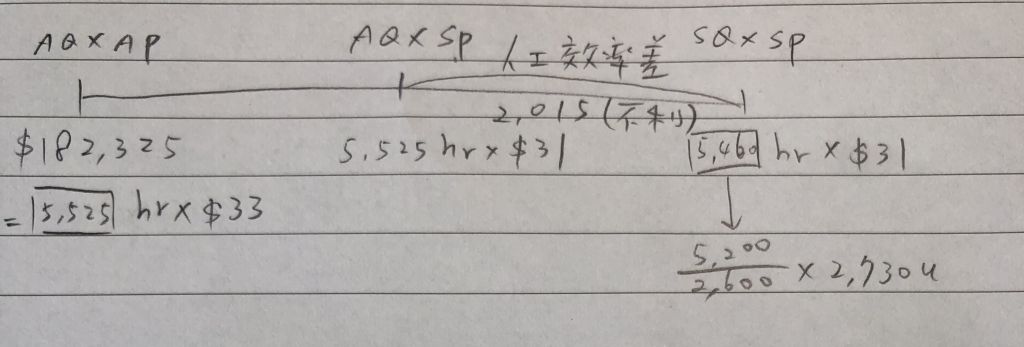 AQ×AP AQ×SP 人工效率差 SQ×SP
2,015(不利)
$182,325 5,525hr×$31 5,460 hr×$31
=5,525 hr×$33
5,200
2,600 ×2,730u